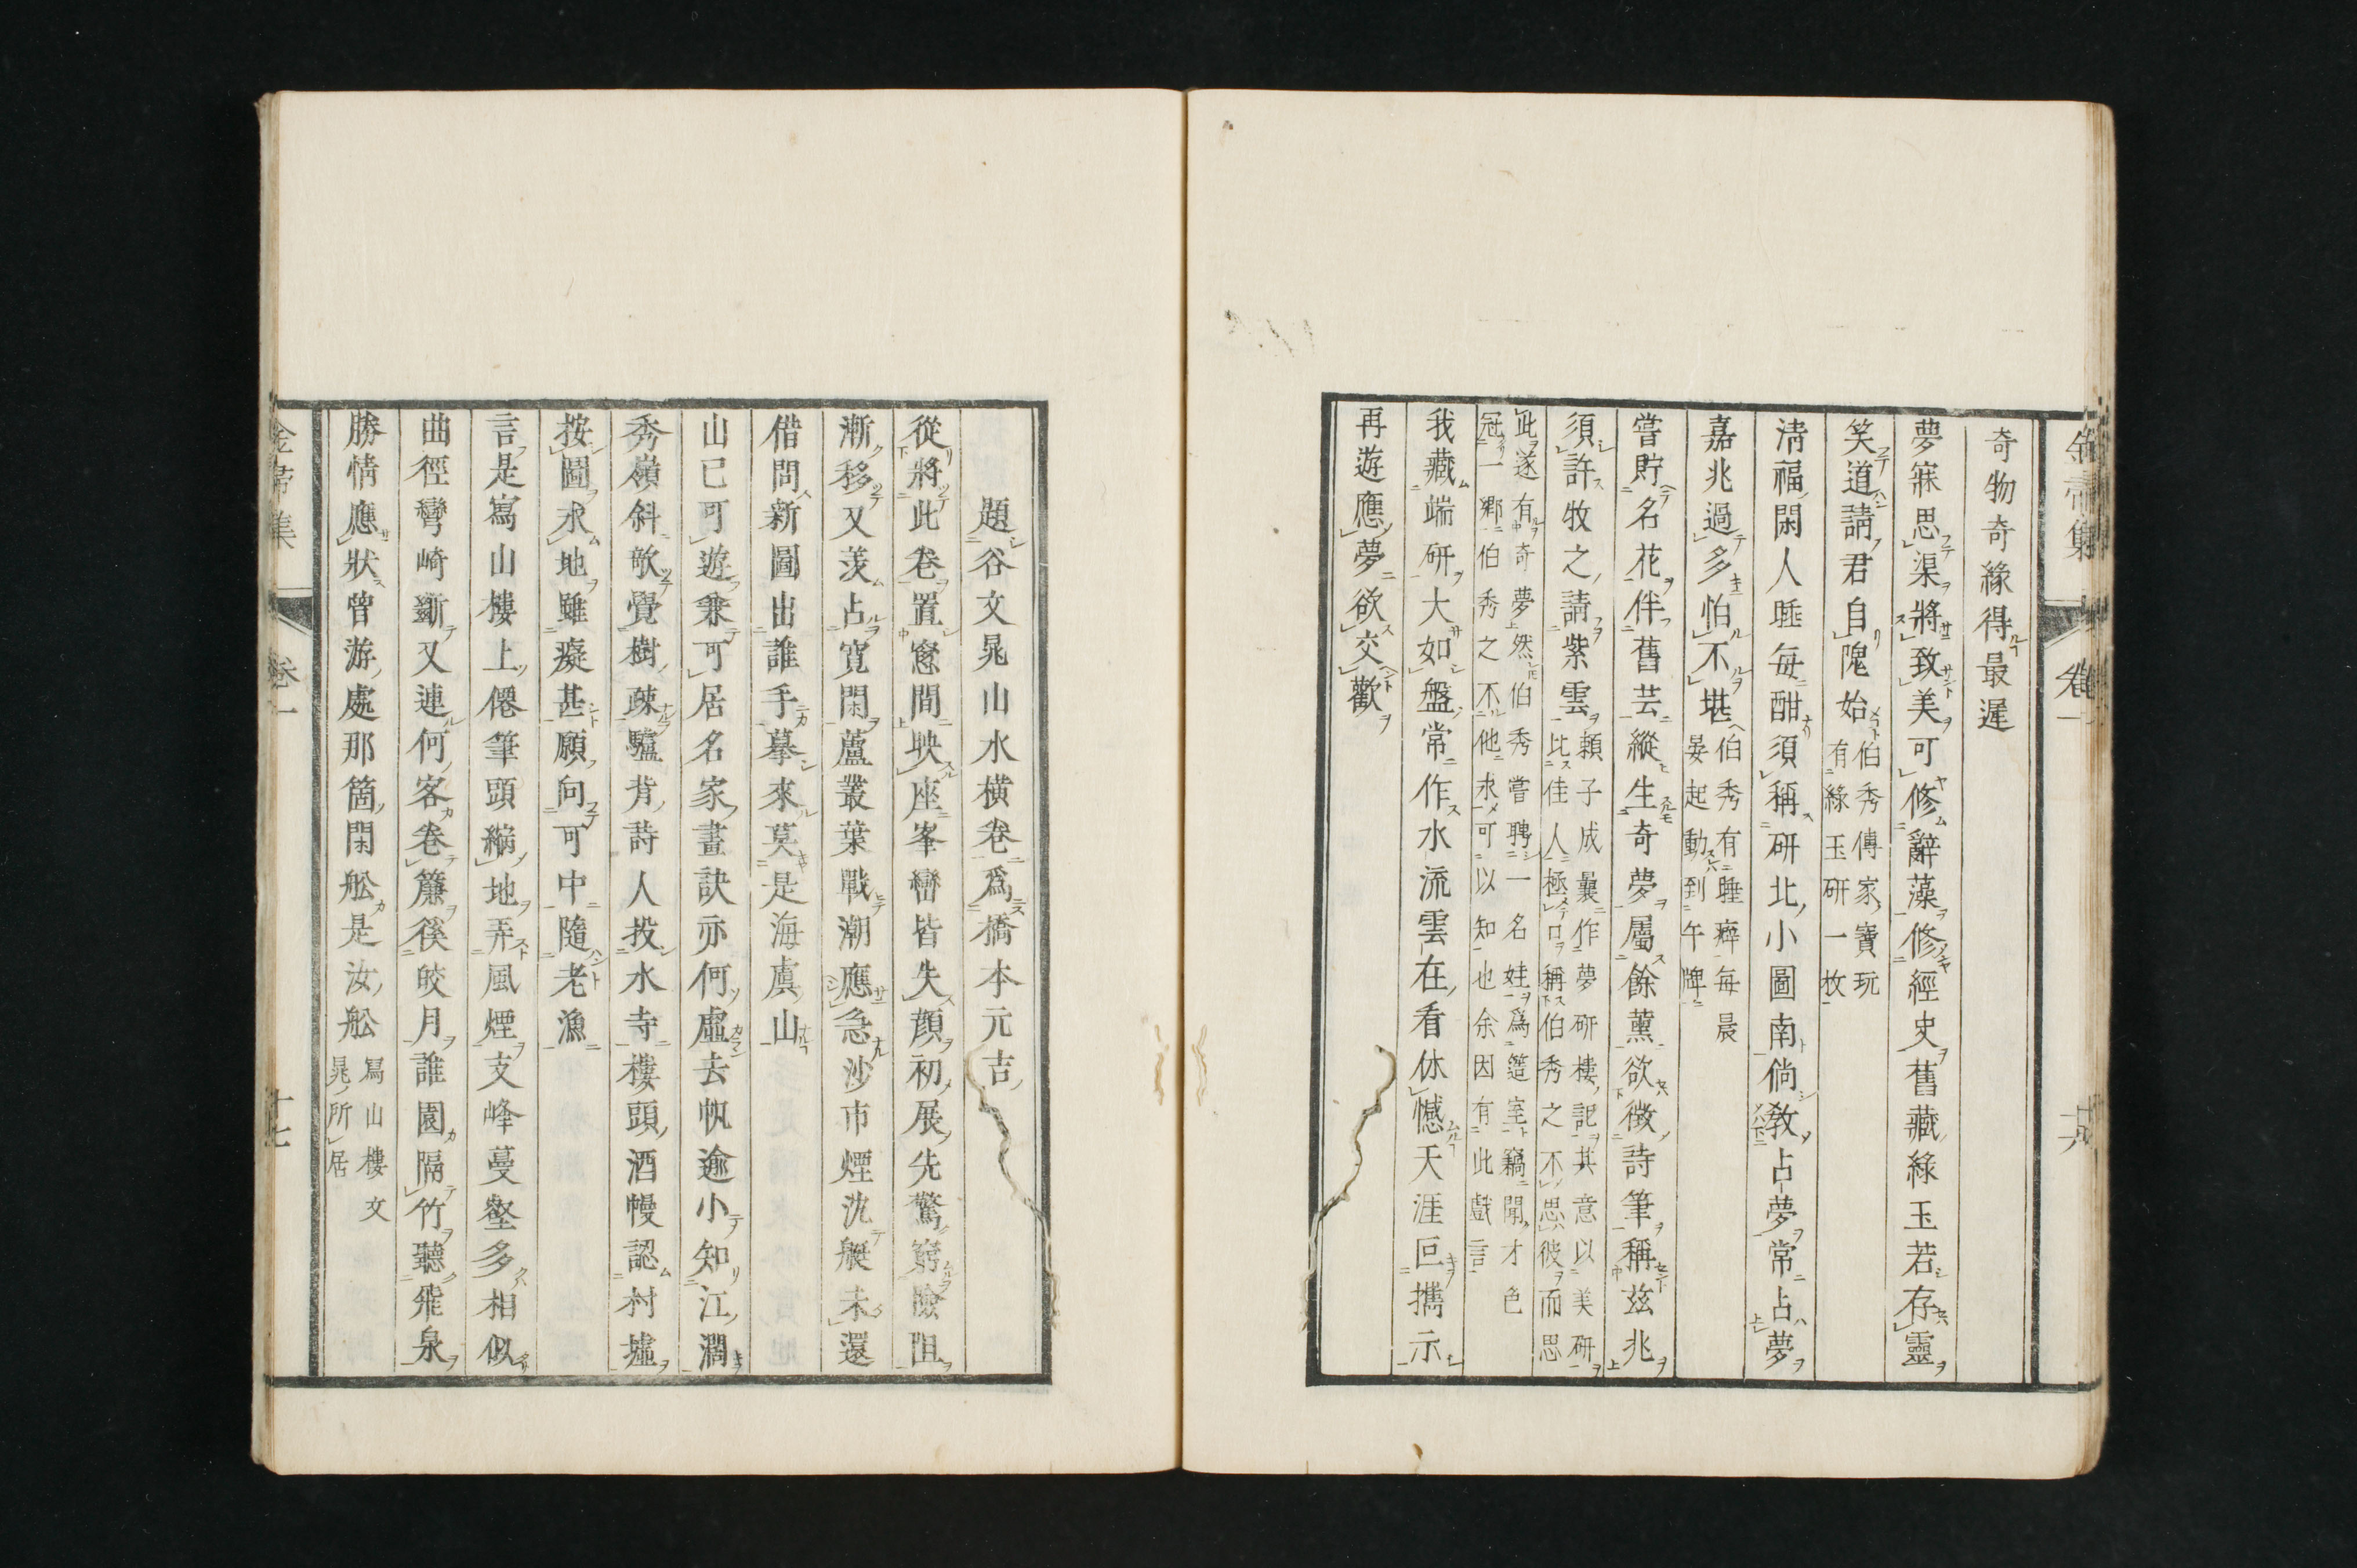 奇物奇緣得最遲
夢寐思渠將致美可修辭藻修經史舊藏綠玉若存靈
笑道請君自隗始伯秀傳家寶玩
有綠玉研一枚
淸福閑人睡每酣須稱研北小圖南倘教占夢常占夢
嘉兆過多怕不堪伯秀有睡癖每晨
晏起動到午牌
嘗貯名花伴舊芸縱生奇夢屬餘薰欲徴詩筆稱茲兆
須許牧之請紫雲賴子成曩作夢研樓記其意以美研
比佳人極口稱伯秀之不思彼而思
此遂有奇夢然伯秀嘗聘一名娃爲簉室竊聞才色
冠一鄉伯秀之不他求可以知也余因有此戲言
我藏端研大如盤常作水流雲在看休憾天涯叵攜示
再遊應夢欲交歡
金帚集 卷一 十六
題谷文晁山水橫卷爲橋本元吉
從將此卷置窻間映座峯巒皆失顏初展先驚窮險阻
漸移又羨占寬閑蘆叢葉戰潮應急沙市煙沈艇未還
借問新圖出誰手摹來莫是海虞山
山已可遊兼可居名家畫訣亦何虛去帆逾小知江濶
秀嶺斜欹覺樹疎驢背詩人投水寺樓頭酒幔認村墟
按圖求地雖癡甚願向可中隨老漁
言是寫山樓上僊筆頭縮地弄風煙支峰蔓壑多相似
曲徑彎崎斷又連何客卷簾徯皎月誰園隔竹聽飛泉
勝情應狀曾游處那箇閑舩是汝舩寫山樓文
晁所居
金帚集 卷一 十七